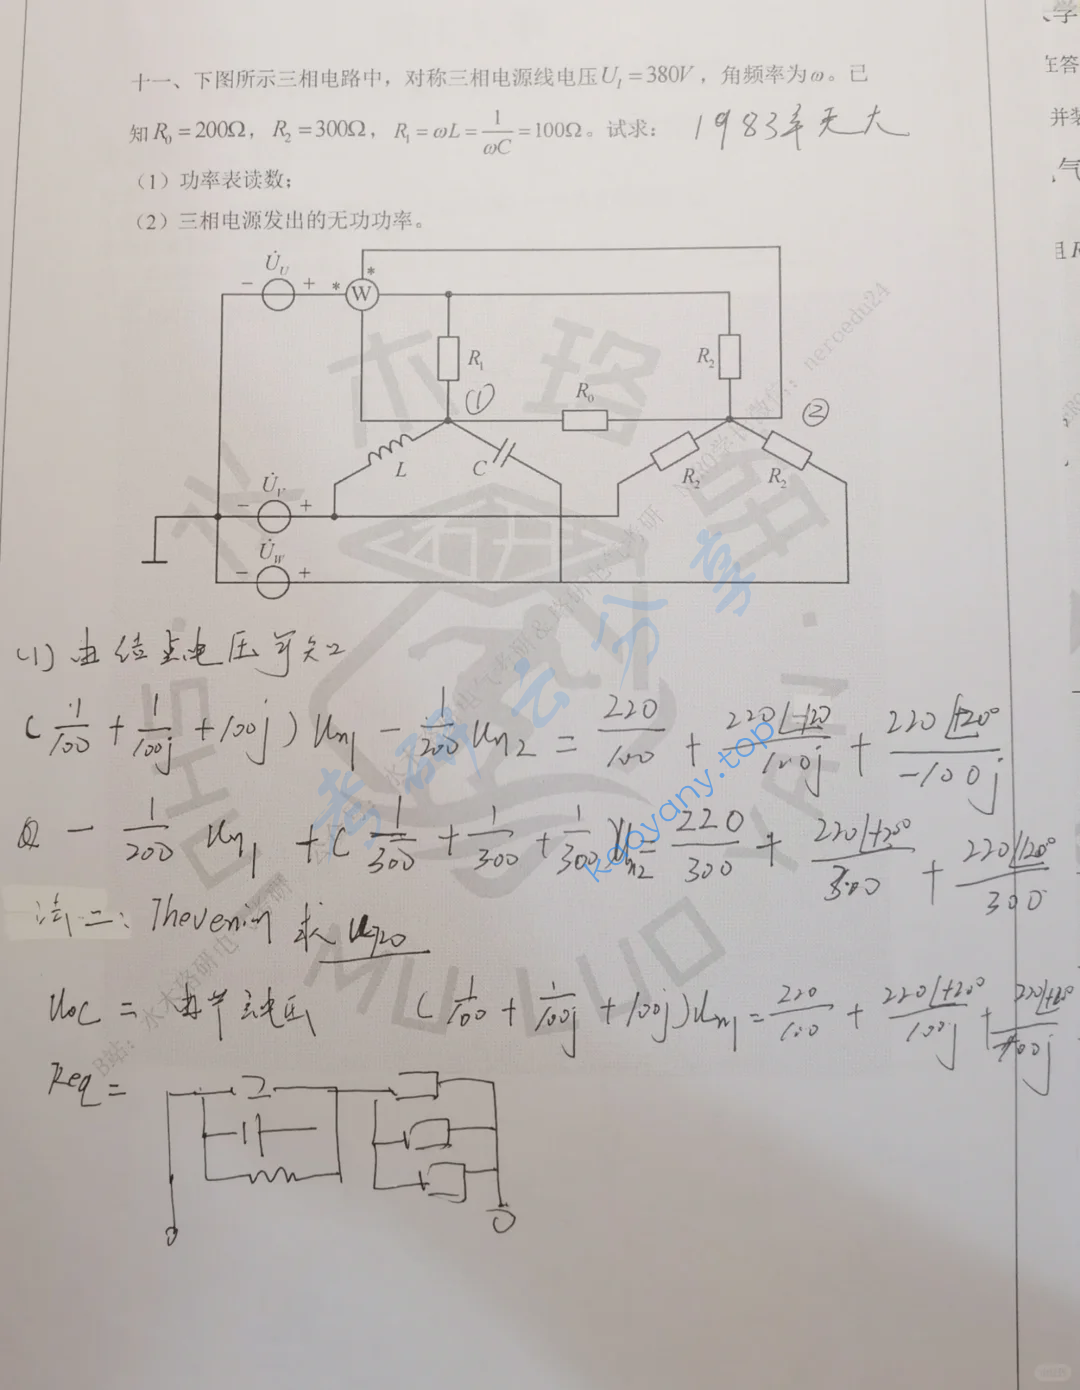 十一、下图所示三相电路中，对称三相电源线电压U_l = 380V，角频率为ω。已
知 R₀ = 200Ω， R₂ = 300Ω， R₁ = ωL = 1/ωC = 100Ω。试求： 1983年天大
（1）功率表读数；
（2）三相电源发出的无功功率。
U̇_U
− + * W *
R₁
R₂
(1)
R₀
②
L
C
R₂
R₂
U̇_V
− +
U̇_W
− +
(1) 由结点电压可知
( 1/100 + 1/100j + 100j ) Un1 − 1/200 Un2 = 220/100 + 220∠-120/100j + 220∠+120°/-100j
− 1/200 Un1 + ( 1/300 + 1/300 + 1/300 ) Un2 = 220/300 + 220∠+120°/300 + 220∠120°/300
法二: Thevenin 求 U120
Uoc = 由节点电压 ( 1/100 + 1/100j + 100j ) Un1 = 220/100 + 220∠+120°/100j + 220∠+120°/-100j
Req =
考研云分享
kaoyany.top
水木珞研
MULUO
YAN
人学
在答
并装
气
且R